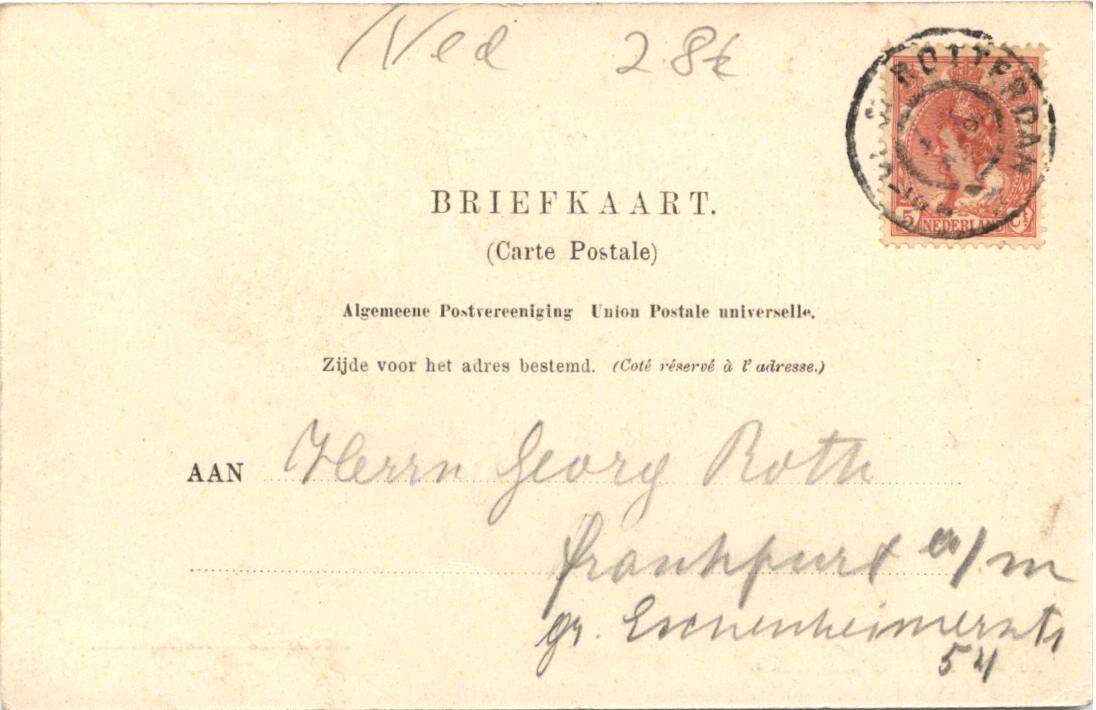 Ned 28
ROTTERDAM
5 NEDERLAND Ct
BRIEFKAART.
(Carte Postale)
Algemeene Postvereeniging Union Postale universelle.
Zijde voor het adres bestemd. (Coté réservé à l'adresse.)
AAN Herrn Georg Roth
Frankfurt a/m
gr. Eschenheimerstr
54